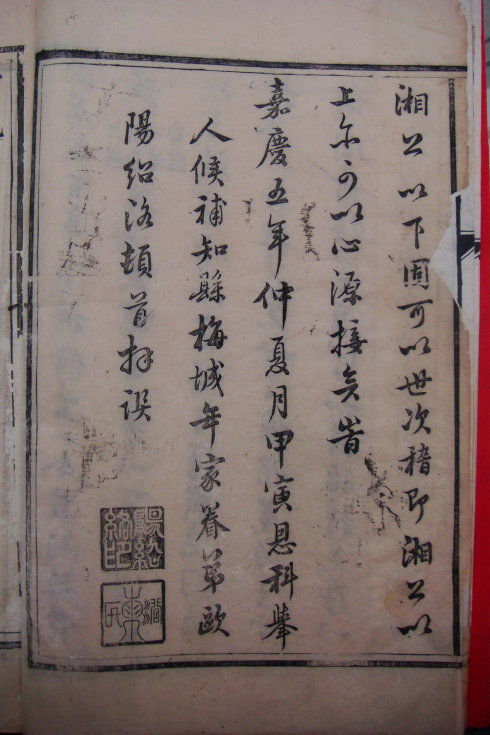 湘公以下固可以世次稽即湘公以
上亦可以心源接矣旹
嘉慶五年仲夏月甲寅恩科舉
人候補知縣梅城年家眷弟歐
陽紹洛頓首拜譔